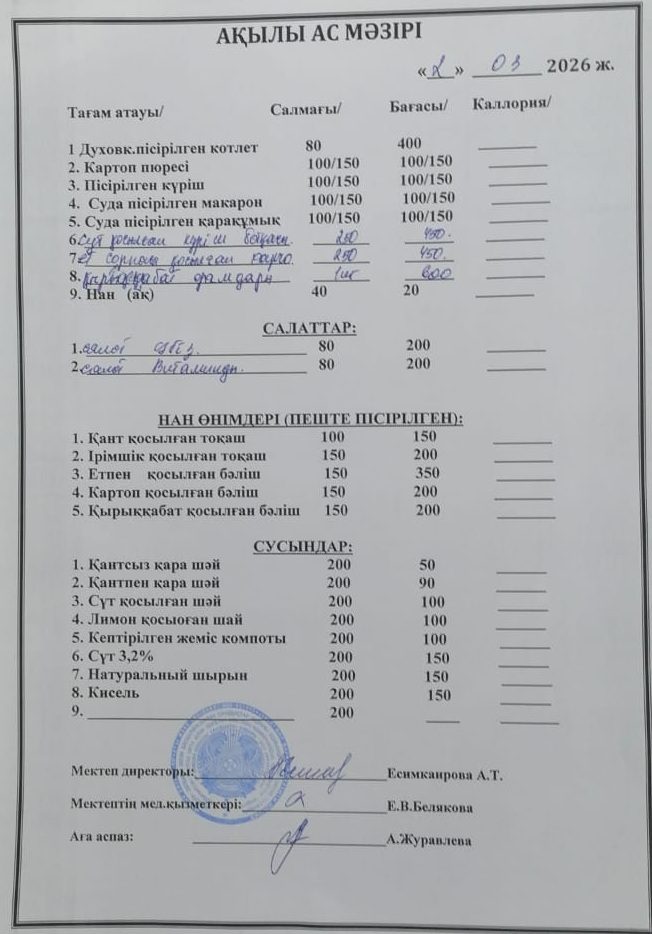 АҚЫЛЫ АС МӘЗІРІ
«2» 03 2026 ж.
Тағам атауы/ Салмағы/ Бағасы/ Каллория/
1 Духовк.пісірілген котлет 80 400
2. Картоп пюресі 100/150 100/150
3. Пісірілген күріш 100/150 100/150
4. Суда пісірілген макарон 100/150 100/150
5. Суда пісірілген қарақұмық 100/150 100/150
6. Сүт қосылған күріш ботқасы. 250 450.
7. Ет сорпасы қосылған 250 450.
8. 1шт 600
9. Нан (ақ) 40 20
САЛАТТАР:
1. салат 80 200
2. салат Витаминды. 80 200
НАН ӨНІМДЕРІ (ПЕШТЕ ПІСІРІЛГЕН):
1. Қант қосылған тоқаш 100 150
2. Ірімшік қосылған тоқаш 150 200
3. Етпен қосылған бәліш 150 350
4. Картоп қосылған бәліш 150 200
5. Қырыққабат қосылған бәліш 150 200
СУСЫНДАР:
1. Қантсыз қара шәй 200 50
2. Қантпен қара шай 200 90
3. Сүт қосылған шәй 200 100
4. Лимон қосыоған шай 200 100
5. Кептірілген жеміс компоты 200 100
6. Сүт 3,2% 200 150
7. Натуральный шырын 200 150
8. Кисель 200 150
9. 200
Мектеп директоры: Есимкаирова А.Т.
Мектептің мед.қызметкері: Е.В.Белякова
Аға аспаз: А.Журавлева